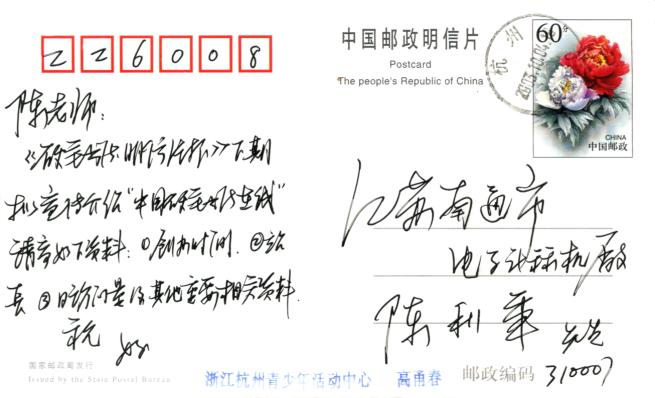 226008
中国邮政明信片
Postcard
The people's Republic of China
60
CHINA
中国邮政
杭州
陈老师：
下期
拟宣传介绍"中国
请寄如下资料：①创办时间．②
③日访问量及其他重要相关资料．
祝
好
江苏南通市
电子计算机厂
陈利華
先生
国家邮政局发行
Issued by the State Postal Bureau
浙江杭州青少年活动中心 高甬春
邮政编码 310007